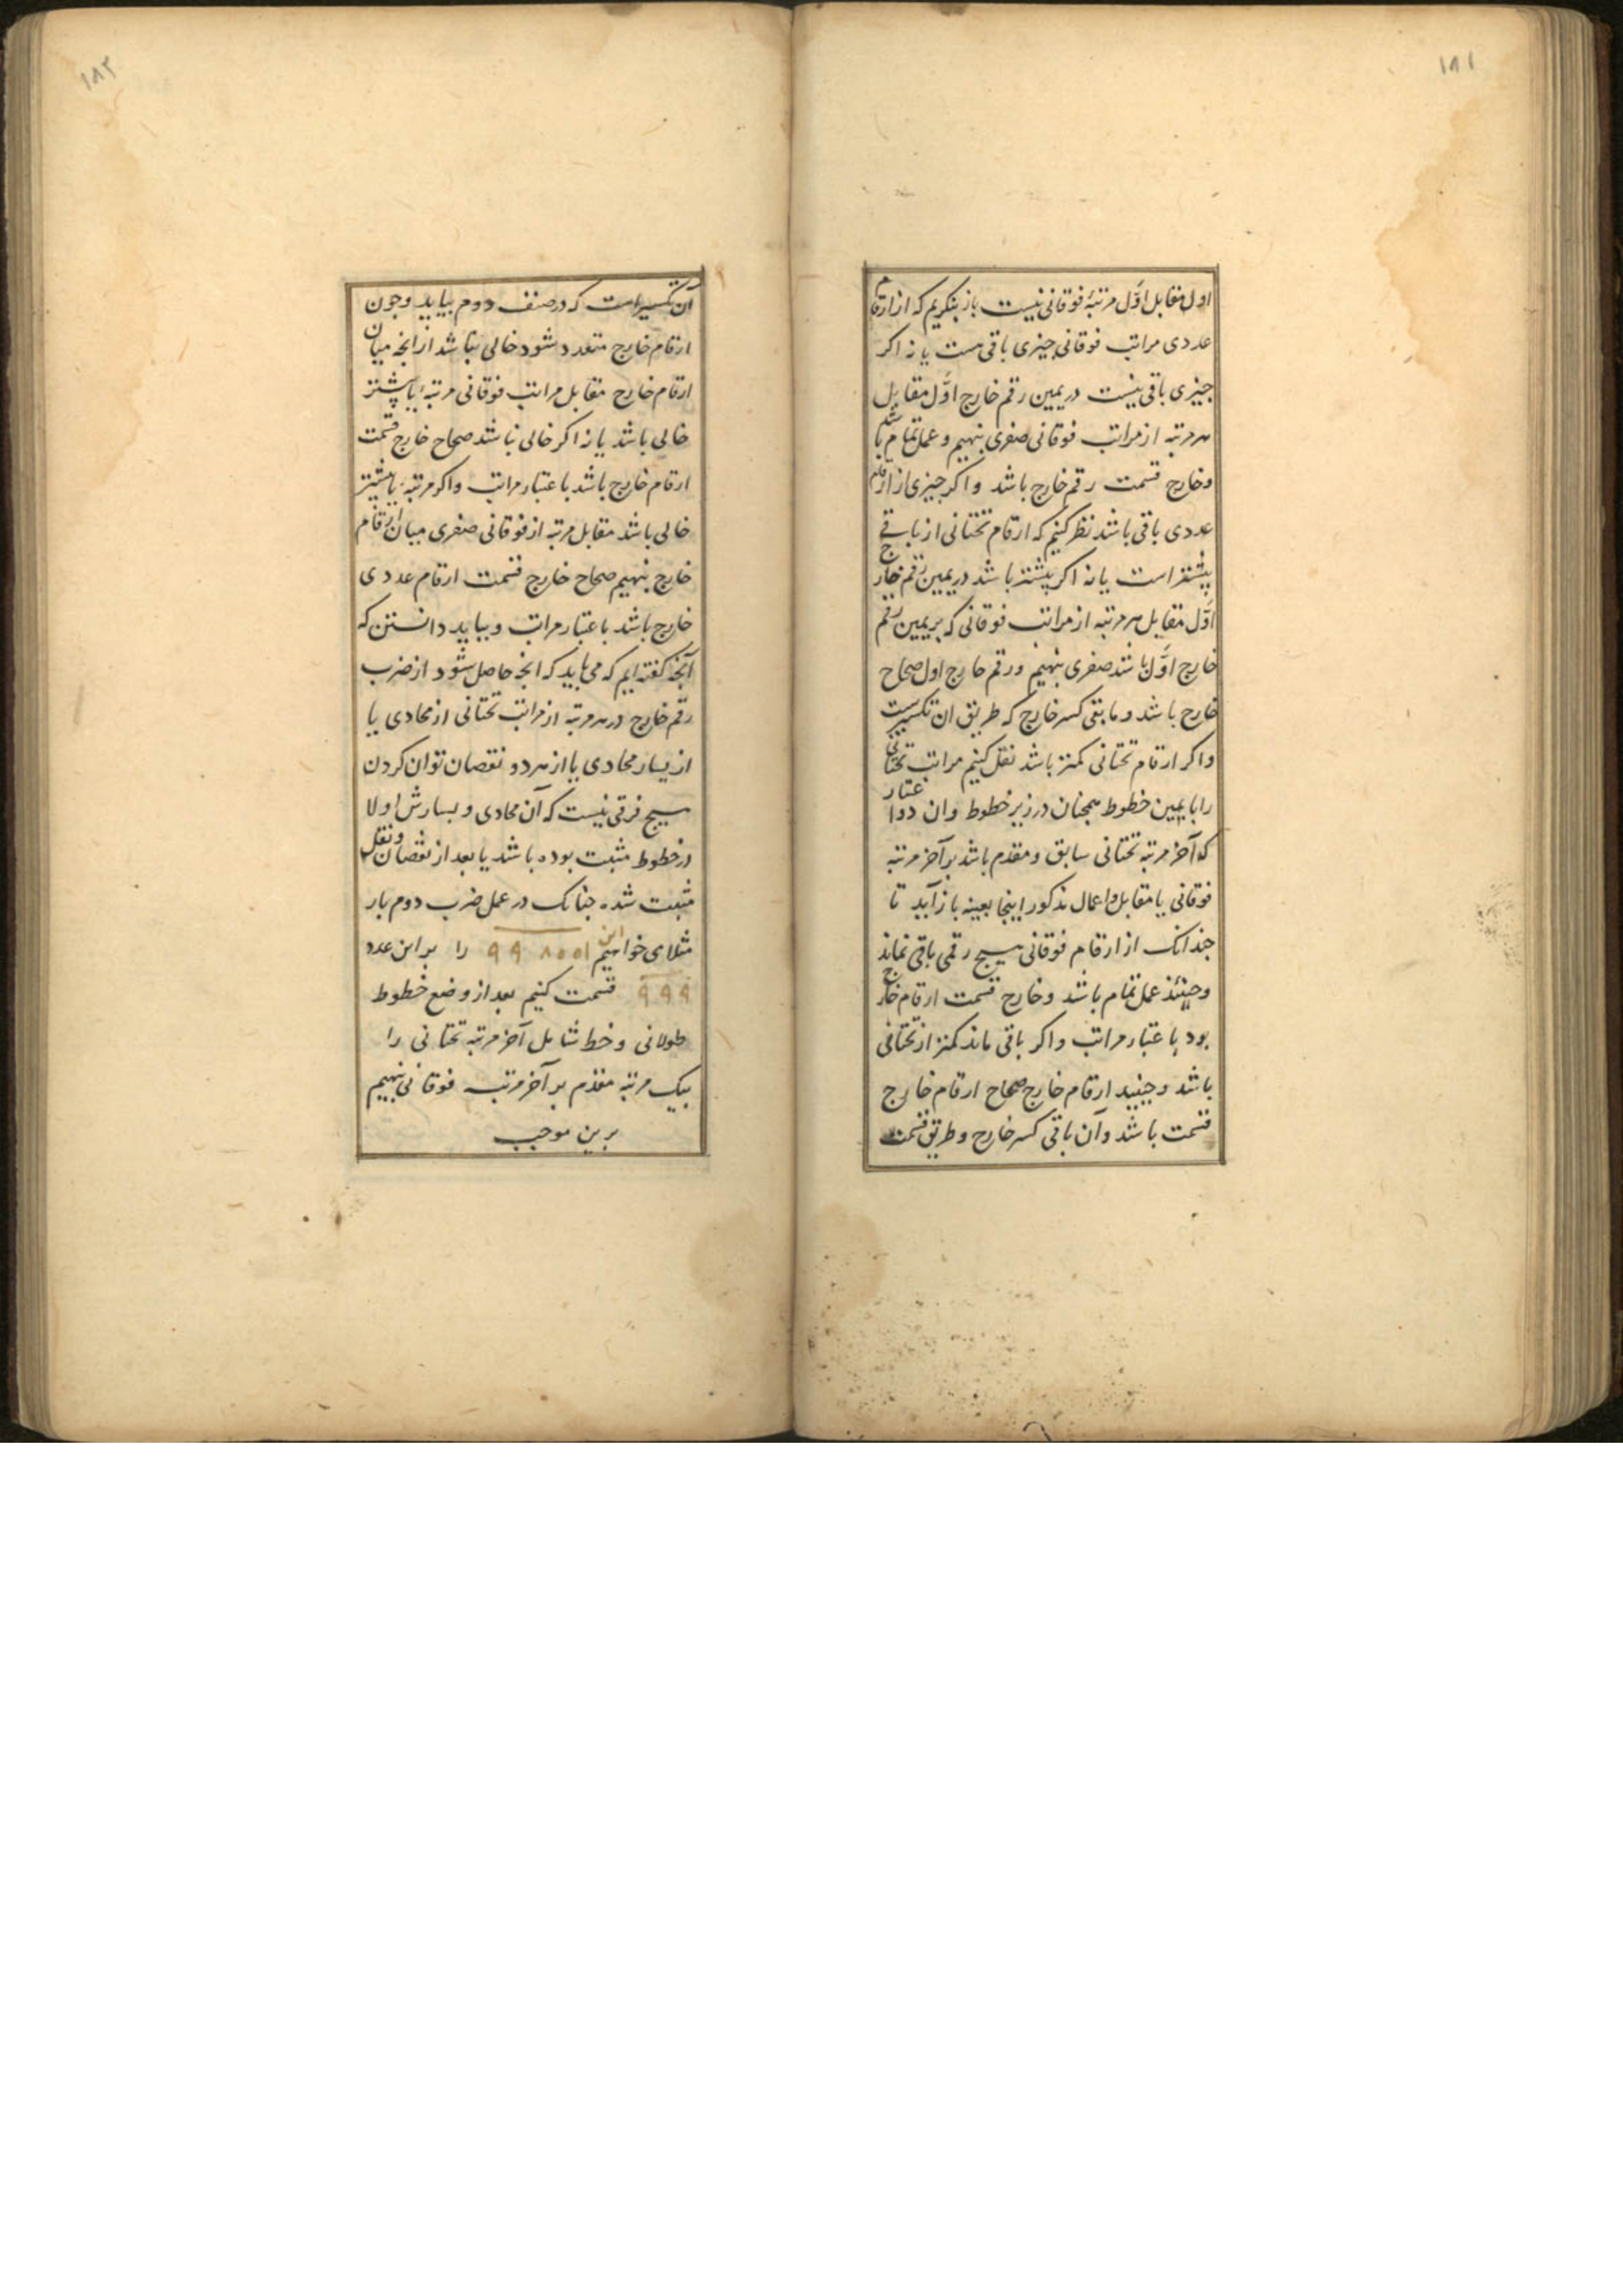 ۱۸۱
اول مقابل اوّل مرتبهٔ فوقانی نیست باز بنکریم که از ارقام
عددی مراتب فوقانی جیزی باقی هست یا نه اکر
جیزی باقی نیست در یمین رقم خارج اوّل مقابل
هر مرتبه از مراتب فوقانی صفری بنهیم و عمل تمام باشد
و خارج قسمت رقم خارج باشد و اکر جیزی از ارقام
عددی باقی باشد نظر کنیم که ارقام تختانی از باقی
پیشتر است یا نه اکر پیشتر باشد در یمین رقم خارج
اوّل مقابل هر مرتبه از مراتب فوقانی که بر یمین رقم
خارج اوّل باشد صفری بنهیم و رقم خارج اول صحاح
خارج باشد و مابقی کسر خارج که طریق ان تکسیرست
و اکر ارقام تحتانی کمتر باشد نقل کنیم مراتب تحتانی
را بایمین خطوط همجنان در زیر خطوط وان دو اعتبار
که آخر مرتبه تحتانی سابق و مقدم باشد بر آخر مرتبه
فوقانی یا مقابل و اعمال مذکور اینجا بعینه باز آید تا
جندانک از ارقام فوقانی هیچ رقمی باقی نماند
وحینئذ عمل تمام باشد و خارج قسمت ارقام خارج
بود با عتبار مراتب و اکر باقی ماند کمتر از تحتانی
باشد و حینید ارقام خارج صحاح ارقام خارج
قسمت باشد و آن باقی کسر خارج و طریق قسمت
۱۸۲
آن تکسیر است که در صنف دوم بیاید و جون
ارقام خارج متعدد شود خالی نباشد از انجه میان
ارقام خارج مقابل مراتب فوقانی مرتبهٔ یا پیشتر
خالی باشد یا نه اکر خالی نباشد صحاح خارج قسمت
ارقام خارج باشد با عتبار مراتب و اکر مرتبهٔ یا پیشتر
خالی باشد مقابل مرتبه از فوقانی صفری میان ارقام
خارج بنهیم صحاح خارج قسمت ارقام عددی
خارج باشد با عتبار مراتب و بباید دانستن که
آنجه کفته ایم که می باید که انجه حاصل شود از ضرب
رقم خارج در هر مرتبه از مراتب تحتانی از محادی یا
از یسار محادی یا از هر دو نقصان توان کردن
هیچ فرقی نیست که آن محادی و یسارش اولا
در خطوط مثبت بوده باشد یا بعد از نقصان و نقل
مثبت شده جنانک در عمل ضرب دوم بار
مثلا می خواهیم این ۹۹۸۰۰۱ را بر این عدد
۹۹۹ قسمت کنیم بعد از وضع خطوط
طولانی و خط شامل آخر مرتبه تحتانی را
بیک مرتبه مقدم بر آخر مرتب فوقانی بنهیم
برین موجب